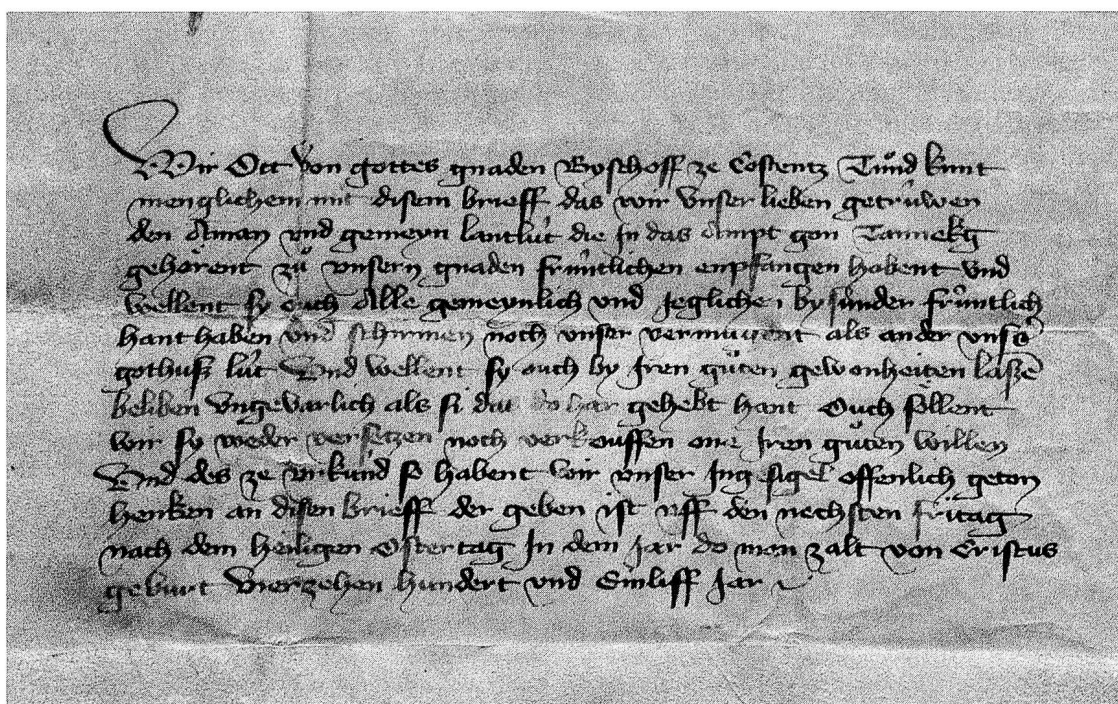 Wir Ott von gottes gnaden Byschoff ze Costentz Tuͦnd kunt
menglichem mit disem brieff das wir unser lieben getrúwen
den Aman und gemeyn lantlút die In das Ampt gon Tannekg
gehörent zuͦ unsern gnaden frúntlichen enpfangen habent und
wellent sy ouch Alle gemeynlich und Jeglichen by sunder frúntlich
hanthaben und schirmen noch unser vermugent als ander unser̄
gothusz lút Und wellent sy ouch by Iren guͦten gewonheiten laszē
beliben ungevarlich als si die do har gehebt hant Ouch söllent
wir sy weder versetzen noch verkouffen one Iren guͦten willen
Und des ze urkúnd so habent wir unser Ingesigel offenlich geton
henken an disen brieff der geben ist uff den nechsten fritag
nach dem heiligen Ostertag In dem Jar do man zalt von Cristus
geburt Vierzehen hundert und Einliff Jar